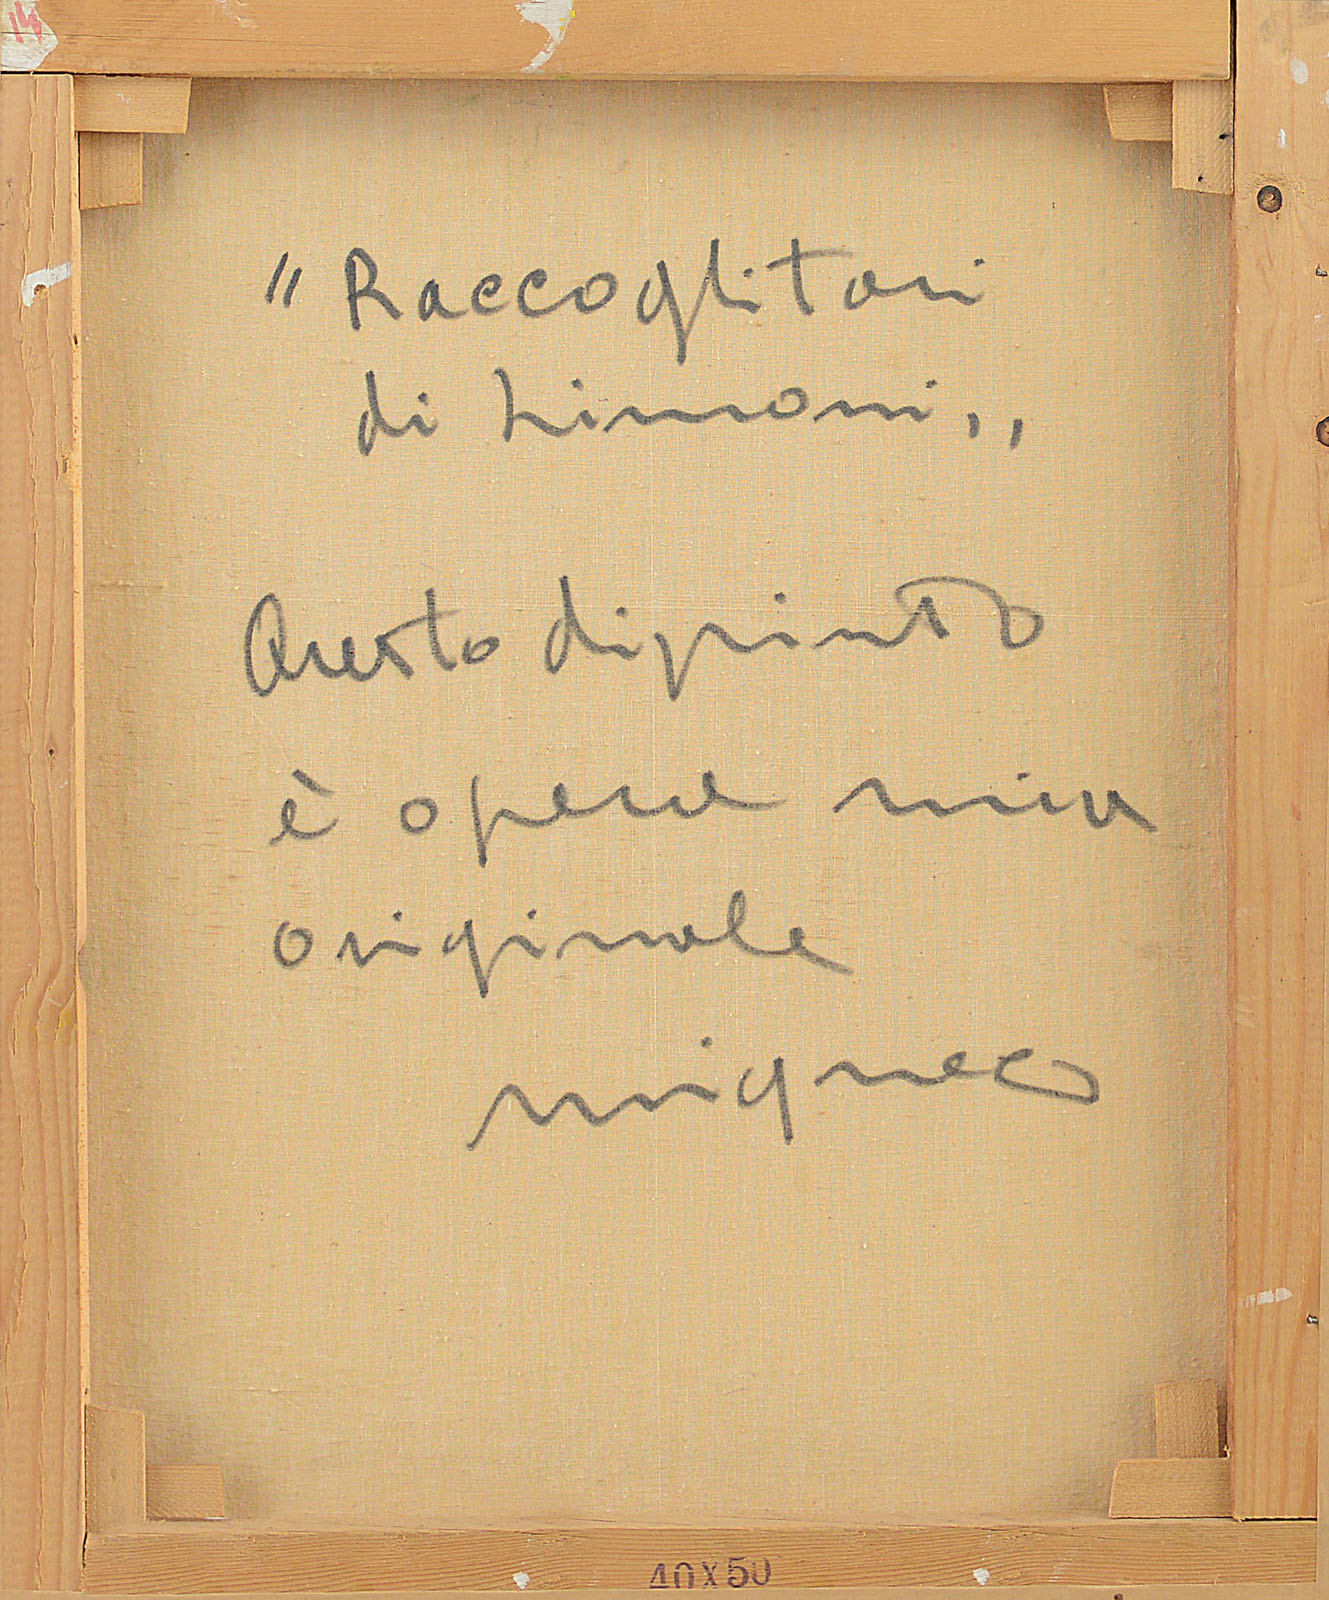 14
" Raccoglitori
di Limoni,,
Questo dipinto
è opera mia
originale
migneco
40X50